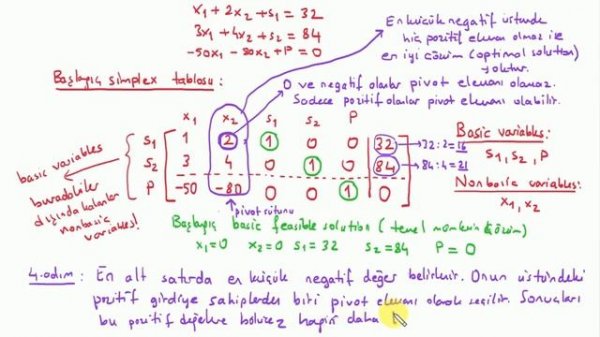 x₁ + 2x₂ + s₁ = 32
3x₁ + 4x₂ + s₂ = 84
-50x₁ - 80x₂ + P = 0
En küçük negatif üstünde
hiç pozitif eleman olmaz ise
en iyi çözüm (optimal solution)
yoktur.
Başlagıç simplex tablosu:
0 ve negatif olanlar pivot elemanı olamaz.
Sadece pozitif olanlar pivot elemanı olabilir.
x₁ x₂ s₁ s₂ P
s₁ 1 2 1 0 0 32 32:2=16
s₂ 3 4 0 1 0 84 84:4=21
P -50 -80 0 0 1 0
basic variables
buradakiler
dışında kalanlar
nonbasic
variables!
Basic variables:
s₁, s₂, P
Nonbasic variables:
x₁, x₂
pivot sütunu
Başlagıç basic feasible solution (temel mümkün çözüm)
x₁=0 x₂=0 s₁=32 s₂=84 P=0
4.adım: En alt satırda en küçük negatif değer belirlenir. Onun üstündeki
pozitif girdiye sahiplerden biri pivot elemanı olarak seçilir. Sonuçları
bu pozitif değerlere böleriz hangisi daha